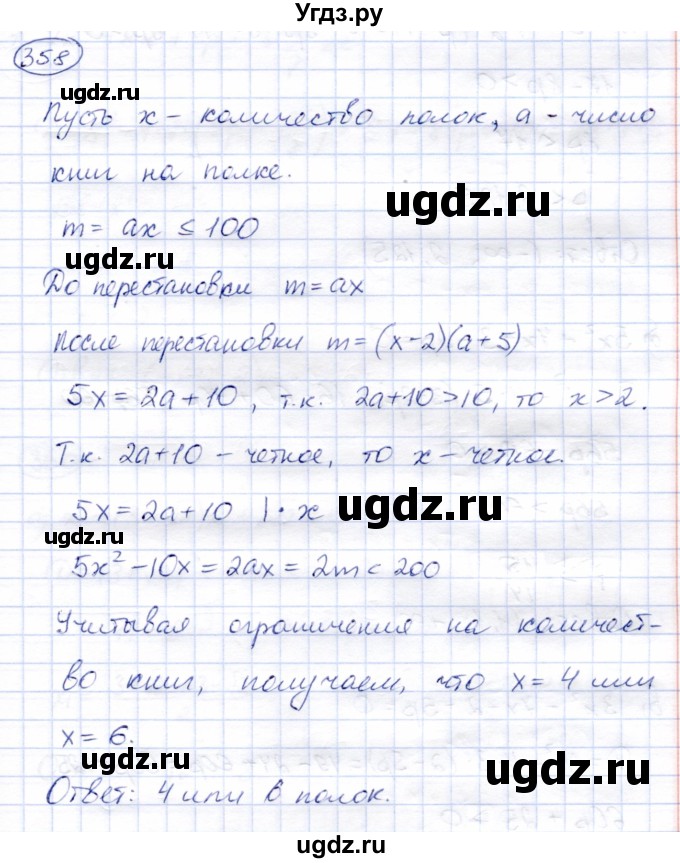 Угдз.ру
358
ugdz.ru
Пусть x – количество полок, a – число
книг на полке.
ugdz.ru
m = ax ≤ 100
ugdz.ru
До перестановки m = ax
После перестановки m = (x-2)(a+5)
5x = 2a + 10, т.к. 2a+10 > 10, то x > 2.
Т.к. 2a+10 – четное, то x – четное.
5x = 2a + 10 | · x
ugdz.ru
ugdz.ru
5x² – 10x = 2ax = 2m < 200
Учитывая ограничения на количест-
во книг, получаем, что x = 4 или
x = 6.
ugdz.ru
ugdz.ru
Ответ: 4 или 6 полок.
ugdz.ru